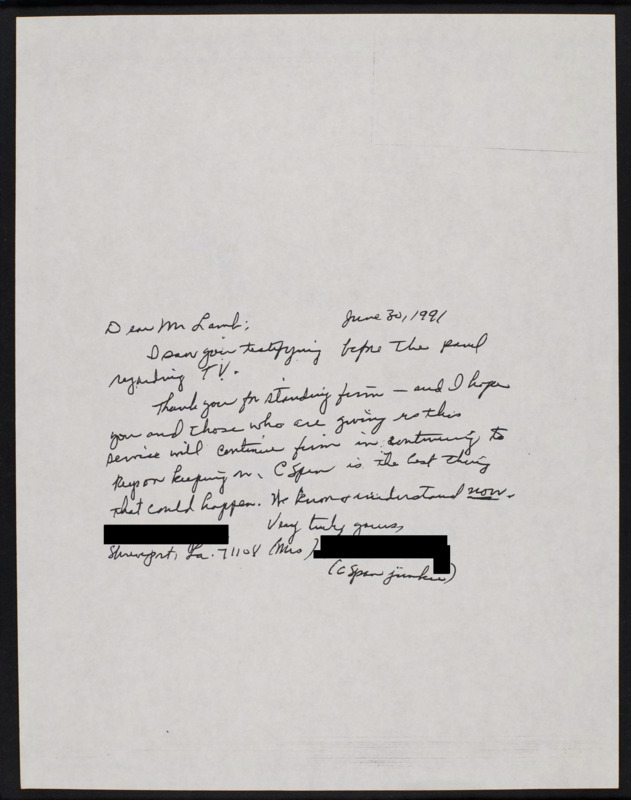 Dear Mr Lamb; June 30, 1991
I saw you testifying before the panel
regarding T.V.
Thank you for standing firm — and I hope
you and those who are giving us this
service will continue firm in continuing to
keep on keeping on. C Span is the best thing
that could happen. We know & understand now.
Very truly yours,
Shreveport, La. 71108 (Mrs)
(C Span junkie)